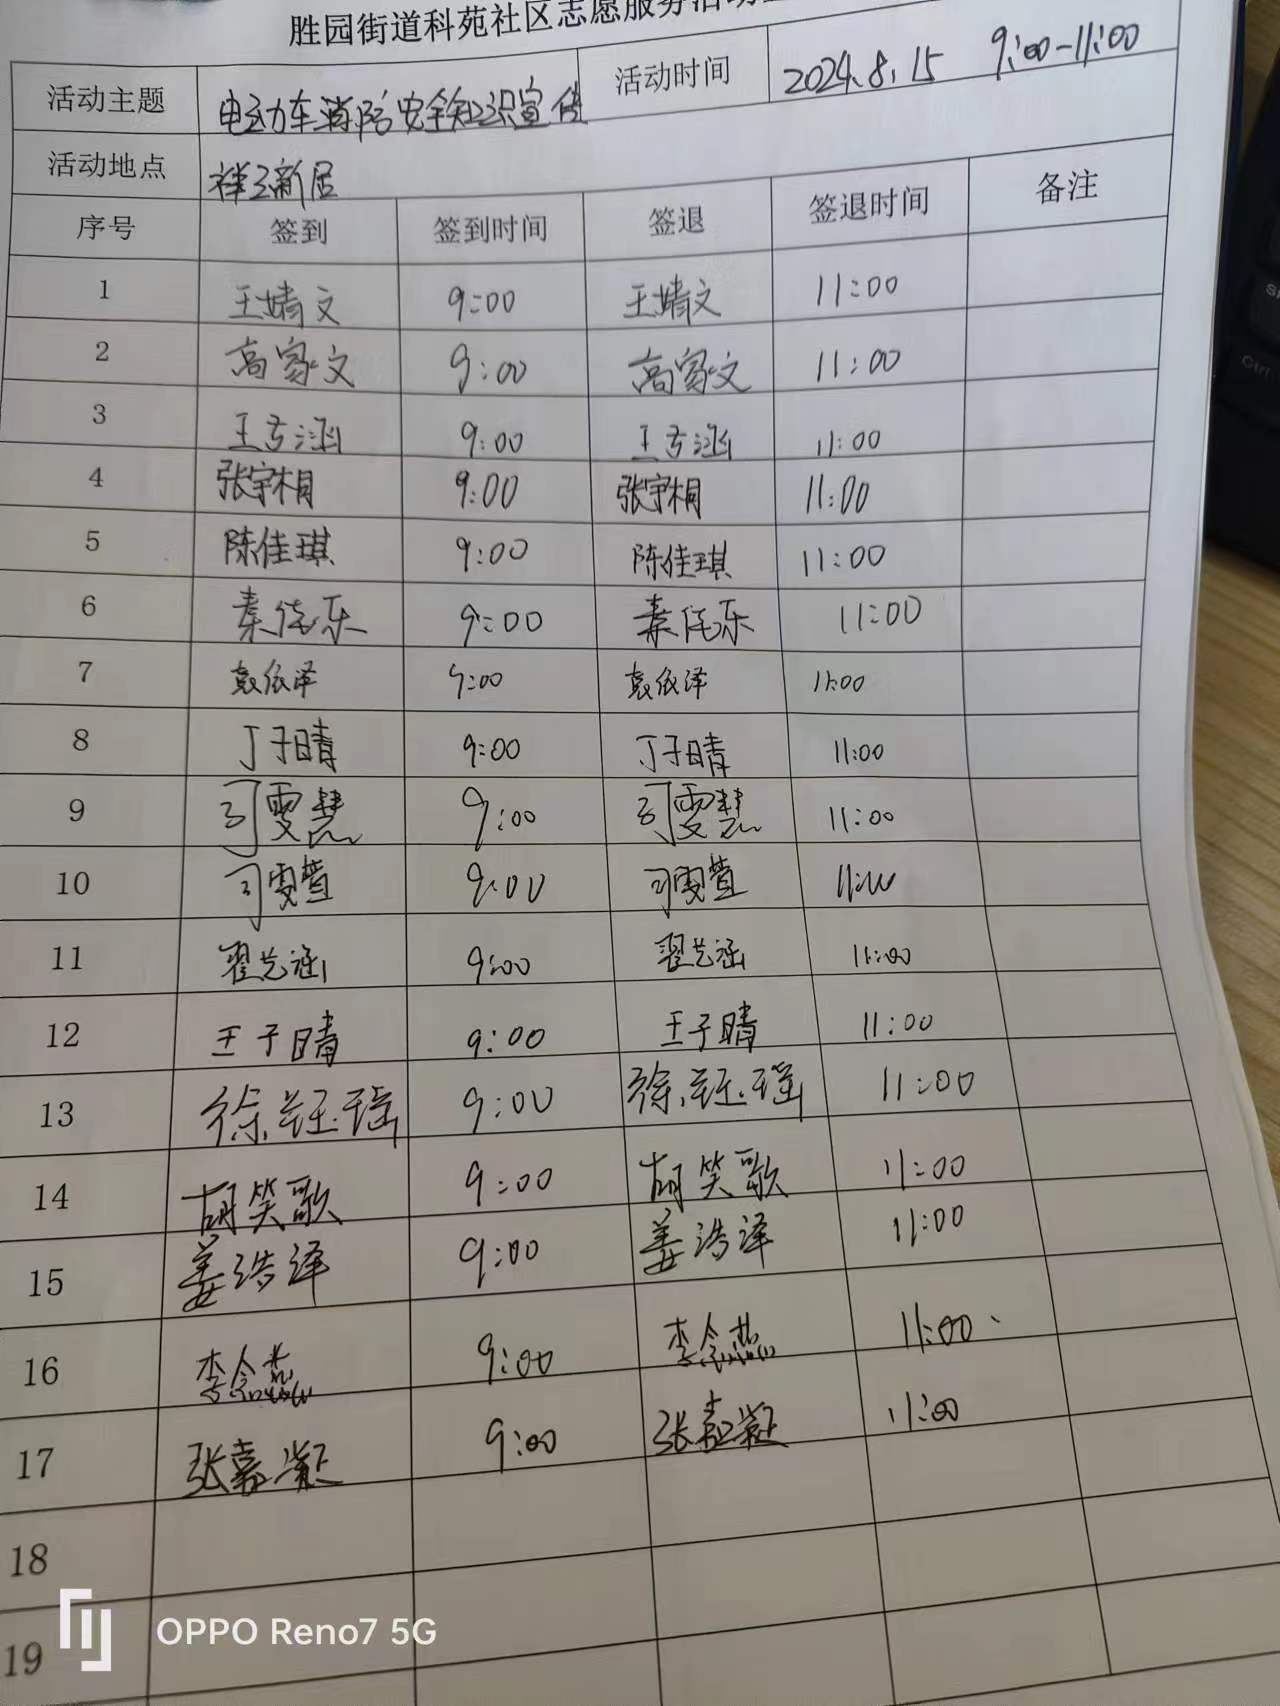 胜园街道科苑社区志愿服务活动
活动主题 电动车消防安全知识宣传 活动时间 2024.8.15 9:00-11:00
活动地点 祥玉新居
序号 签到 签到时间 签退 签退时间 备注
1 王婧文 9:00 王婧文 11:00
2 高家文 9:00 高家文 11:00
3 王方涵 9:00 王方涵 11:00
4 张宇桐 9:00 张宇桐 11:00
5 陈佳琪 9:00 陈佳琪 11:00
6 秦乐 9:00 秦乐 11:00
7 袁依泽 9:00 袁依泽 11:00
8 丁子晴 9:00 丁子晴 11:00
9 司雯慧 9:00 司雯慧 11:00
10 司雯萱 9:00 司雯萱 11:00
11 翟艺涵 9:00 翟艺涵 11:00
12 王子晴 9:00 王子晴 11:00
13 徐钰瑶 9:00 徐钰瑶 11:00
14 胡笑歌 9:00 胡笑歌 11:00
15 姜浩泽 9:00 姜浩泽 11:00
16 李念燕 9:00 李念燕 11:00
17 张嘉凝 9:00 张嘉凝 11:00
18
19
OPPO Reno7 5G